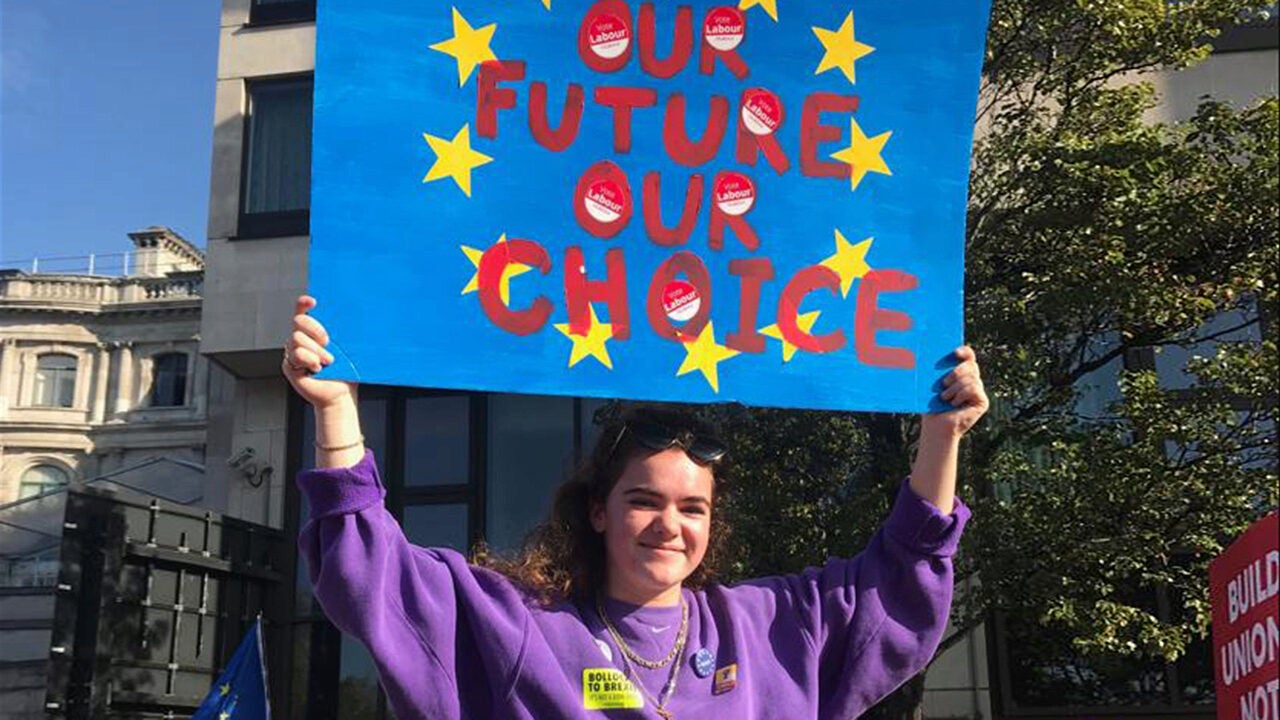 OUR
FUTURE
OUR
CHOICE
Vote
Labour
Vote
Labour
Vote
Labour
Vote
Labour
Vote
Labour
Vote
Labour
TO
BUILD
UNION
NOT